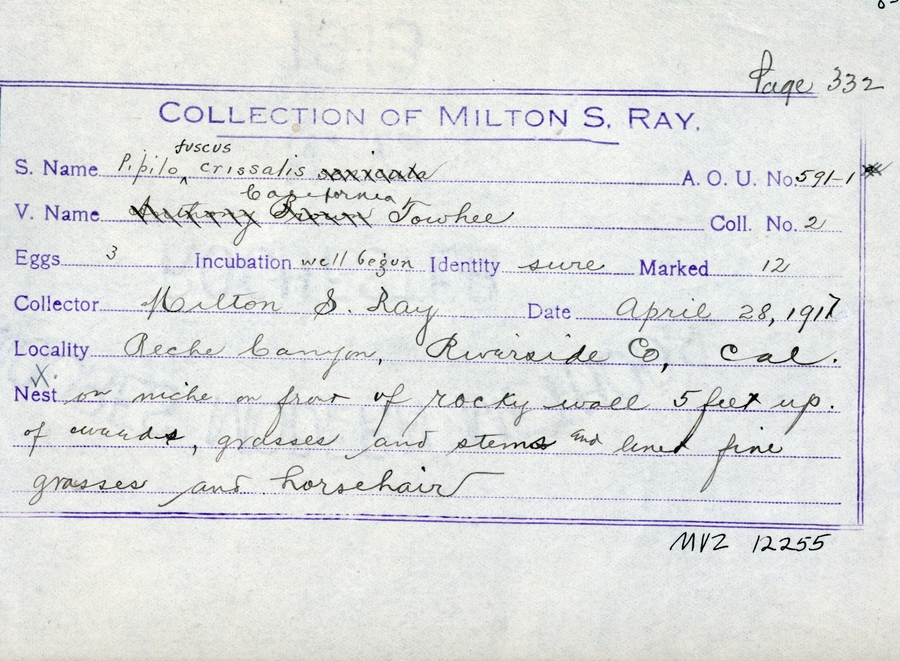 Page 332
COLLECTION OF MILTON S. RAY.
fuscus
S. Name Pipilo ‸ crissalis senicula A. O. U. No. 591-1
California
V. Name Anthony Brown Towhee Coll. No. 2
Eggs 3 Incubation well begun Identity sure Marked 12/3
Collector Milton S. Ray Date April 28, 1917
Locality Reche Canyon, Riverside Co, Cal.
X.
Nest on niche on front of rocky wall 5 feet up.
of weeds, grasses and stems and lined fine
grasses and horsehair
MVZ 12255